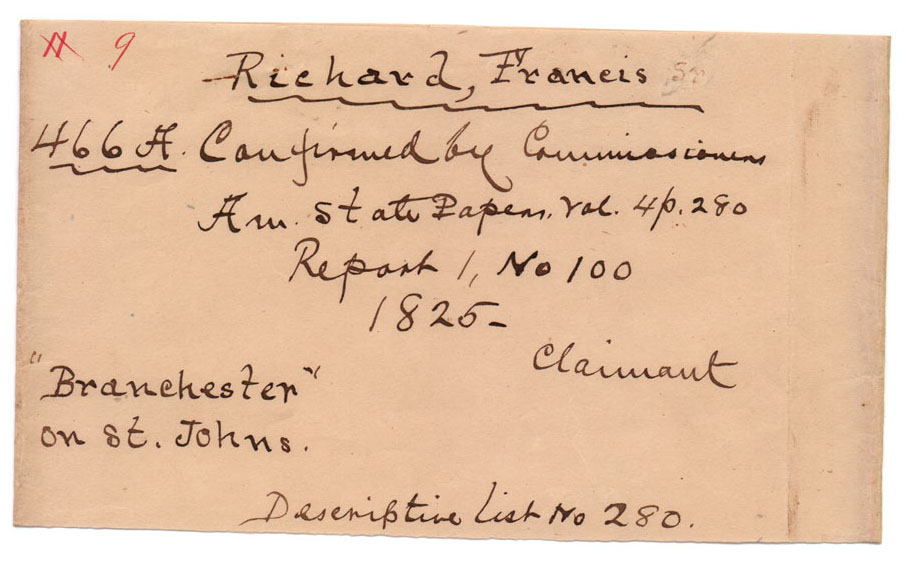 9
Richard, Francis Sr
466 A. Confirmed by Commissioners
Am. State Papers. Vol. 4 p. 280
Report 1, No 100
1825-
Claimant
"Branchester"
on St. Johns.
Descriptive List No 280.